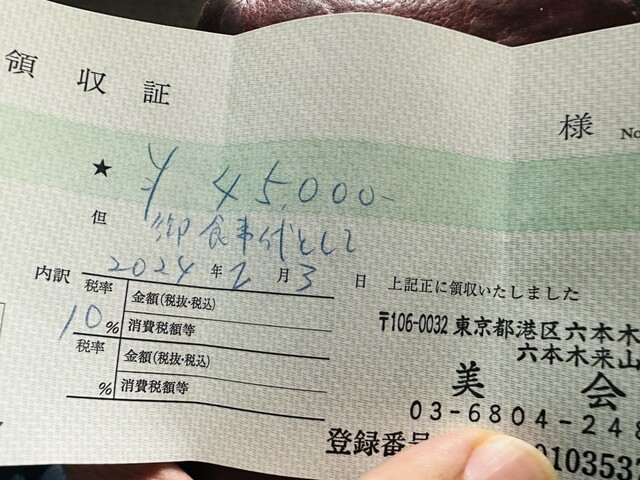 領収証
様 No
★ ¥45,000-
但 御食事代として
2024年2月3日 上記正に領収いたしました
内訳 税率 10%
金額(税抜・税込)
消費税額等
税率 %
金額(税抜・税込)
消費税額等
〒106-0032 東京都港区六本木
六本木来山
美 会
03-6804-248
登録番号 0103537